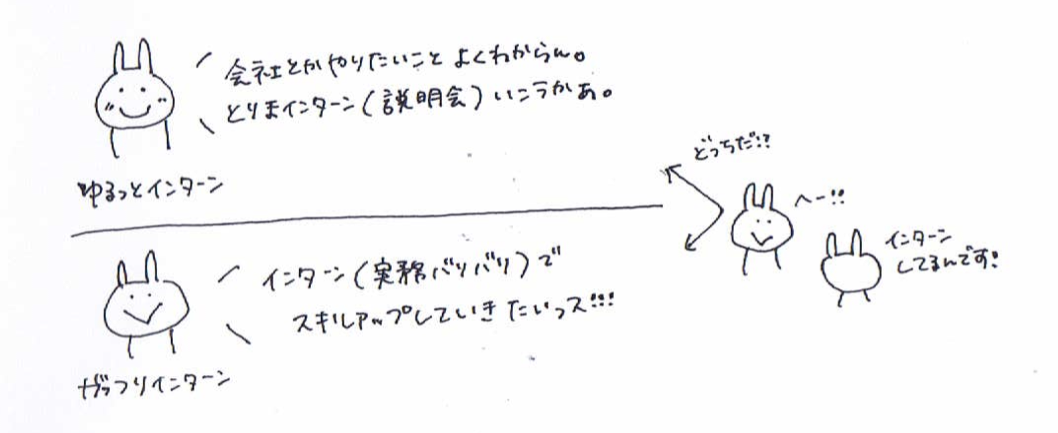 会社とかやりたいこと よくわからん。
とりまインターン(説明会)いこうかあ。
ゆるっとインターン
どっちだ!?
へー!!
インターン
してるんです!
インターン(実務バリバリ)で
スキルアップしていきたいっス!!!
がっつりインターン